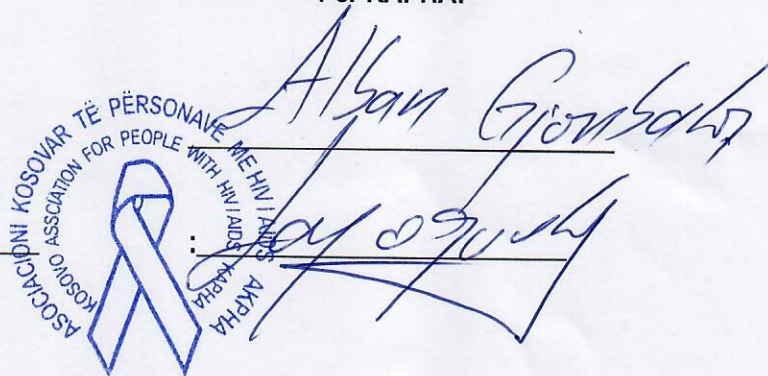 Alban Gjonbalaj
:
ASOCIACIONI KOSOVAR TË PËRSONAVE ME HIV / AIDS AKPHA
KOSOVO ASSCIATION FOR PEOPLE WITH HIV / AIDS KAPHA